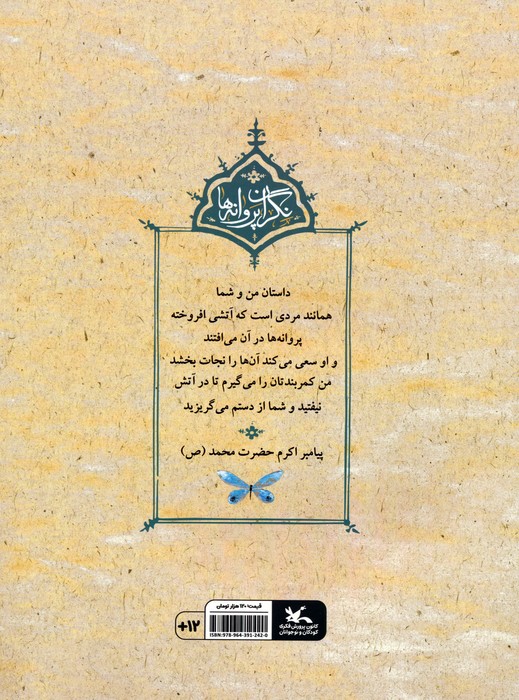 نگران پروانه‌ها
داستان من و شما
همانند مردی است که آتشی افروخته
پروانه‌ها در آن می‌افتند
و او سعی می‌کند آن‌ها را نجات بخشد
من کمربندتان را می‌گیرم تا در آتش
نیفتید و شما از دستم می‌گریزید
پیامبر اکرم حضرت محمد (ص)
+۱۲
قیمت: ۱۲۰ هزار تومان
ISBN: 978-964-391-242-0
کانون پرورش فکری
کودکان و نوجوانان